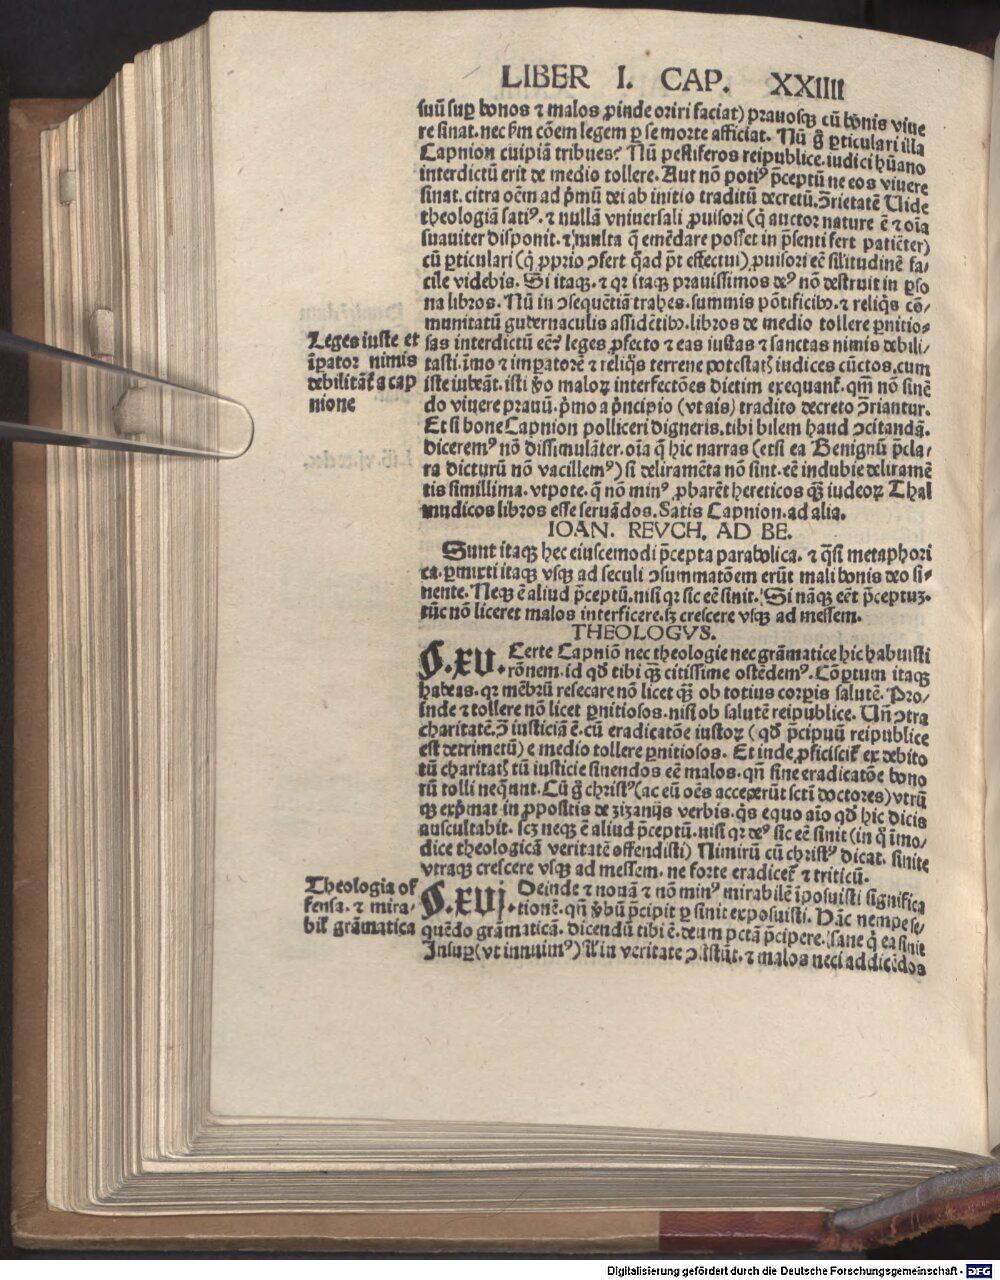 LIBER I. CAP. XXIIII
suū suꝑ bonos ⁊ malos ꝓinde oriri faciat) prauosqꝫ cū bonis viue
re sinat. nec ẜm cōem legem ꝑ se morte afficiat. Nū g̊ ꝑticulari illa
Capnion cuipiā tribues? Nū pestiferos reipublice. iudici hūano
interdictū erit de medio tollere. Aut nō potiꝰ p̄ceptū ne eos viuere
sinat. citra oēm ad p̄mū dei ab initio traditū decretū. ꝯrietatē Uide
theologiā satiꝰ. ⁊ nullā vniuersali ꝓuisori (q̄ auctor nature ē ⁊ oīa
suauiter disponit. ⁊ multa q̄ emēdare posset in p̄senti fert patiēter)
cū ꝑticulari (q̄ ꝓprio ꝯfert q̄ad p̄t effectui) ꝓuisori eē sil'itudinē fa/
cile videbis. Si itaqꝫ. ⁊ qꝛ itaqꝫ prauissimos deꝰ nō destruit in ꝑso
na libros. Nū in ꝯsequētiā trahes. summis pōtificibꝫ. ⁊ reliq̄s cō/
munitatū gubernaculis assidētibꝫ. libros de medio tollere ꝑnitio/
Leges iuste et
īpator nimis
debilitāt̄ a cap
nione
sas interdictū eē? leges ꝓfecto ⁊ eas iustas ⁊ sanctas nimis debili/
tasti. īmo ⁊ imꝑatorē ⁊ reliq̄s terrene potestatꝭ iudices cūctos. cum
iste iubeāt. isti ꝟo maloꝝ interfectōes dietim exequant̄. qm̄ nō sinē
do viuere prauū. p̄mo a p̄ncipio (vt ais) tradito decreto ꝯriantur.
Et si bone Capnion polliceri digneris. tibi bilem haud ꝯcitandā.
diceremꝰ nō dissimulāter. oīa q̄ hic narras (etsi ea Benignū p̄cla/
ra dicturū nō vacillemꝰ) si deliramēta nō sint. eē indubie deliramē
tis simillima. vtpote. q̄ nō minꝰ ꝓbarēt hereticos qꝫ̄ iudeoꝝ Thal
mudicos libros esse seruādos. Satis Capnion. ad alia.
IOAN. REVCH. AD BE.
Sunt itaqꝫ hec eiuscemodi p̄cepta parabolica. ⁊ q̄si metaphori
ca. ꝑmixti itaqꝫ vsqꝫ ad seculi ꝯsummatōem erūt mali bonis deo si/
nente. Neqꝫ ē aliud p̄ceptū. nisi qꝛ sic eē sinit. Si nāqꝫ eēt p̄ceptuꝫ.
tūc nō liceret malos interficere. sꝫ crescere vsqꝫ ad messem.
THEOLOGVS.
§.XV. Certe Capniō nec theologie nec grāmatice hic habuisti
rōnem. id qd̄ tibi qꝫ̄ citissime ostēdemꝰ. Cōꝑtum itaqꝫ
habeas. qꝛ mēbrū resecare nō licet qꝫ̄ ob totius corꝑis salutē. Pro/
inde ⁊ tollere nō licet ꝑnitiosos. nisi ob salutē reipublice. Un̄ ꝯtra
charitatē. ꝯ iusticiā ē. cū eradicatōe iustoꝝ (qd̄ p̄cipuū reipublice
est detrimetū) e medio tollere ꝑnitiosos. Et inde ꝓficiscit̄ ex debito
tū charitatꝭ tū iusticie sinendos eē malos. qn̄ sine eradicatōe bono
rū tolli neq̄unt. Cū g̊ christꝰ (ac eū oēs acceperūt scti doctores) vtrū
qꝫ exp̄mat in ꝓpositis de zizanijs verbis. q̄s equo aīo qd̄ hic dicis
auscultabit. scꝫ neqꝫ ē aliud p̄ceptū. nisi qꝛ deꝰ sic eē sinit (in q̄ īmo/
dice theologicā veritatē offendisti) Nimirū cū christꝰ dicat. sinite
vtraqꝫ crescere vsqꝫ ad messem. ne forte eradicet̄ ⁊ triticū.
Theologia of
fensa. ⁊ mira/
bil' grāmatica
§.XVj. Deinde ⁊ nouā ⁊ nō minꝰ mirabilē īposuisti significa
tionē. qn̄ ꝟbū p̄cipit ꝑ sinit exposuisti. Hāc nempe se/
quēdo grāmaticā. dicendū tibi ē. deum pctā p̄cipere. (sane q̄ ea sinit
Insuꝑ (vt innuimꝰ) il' in veritate ꝯsistūt. ⁊ malos neci addicēdos